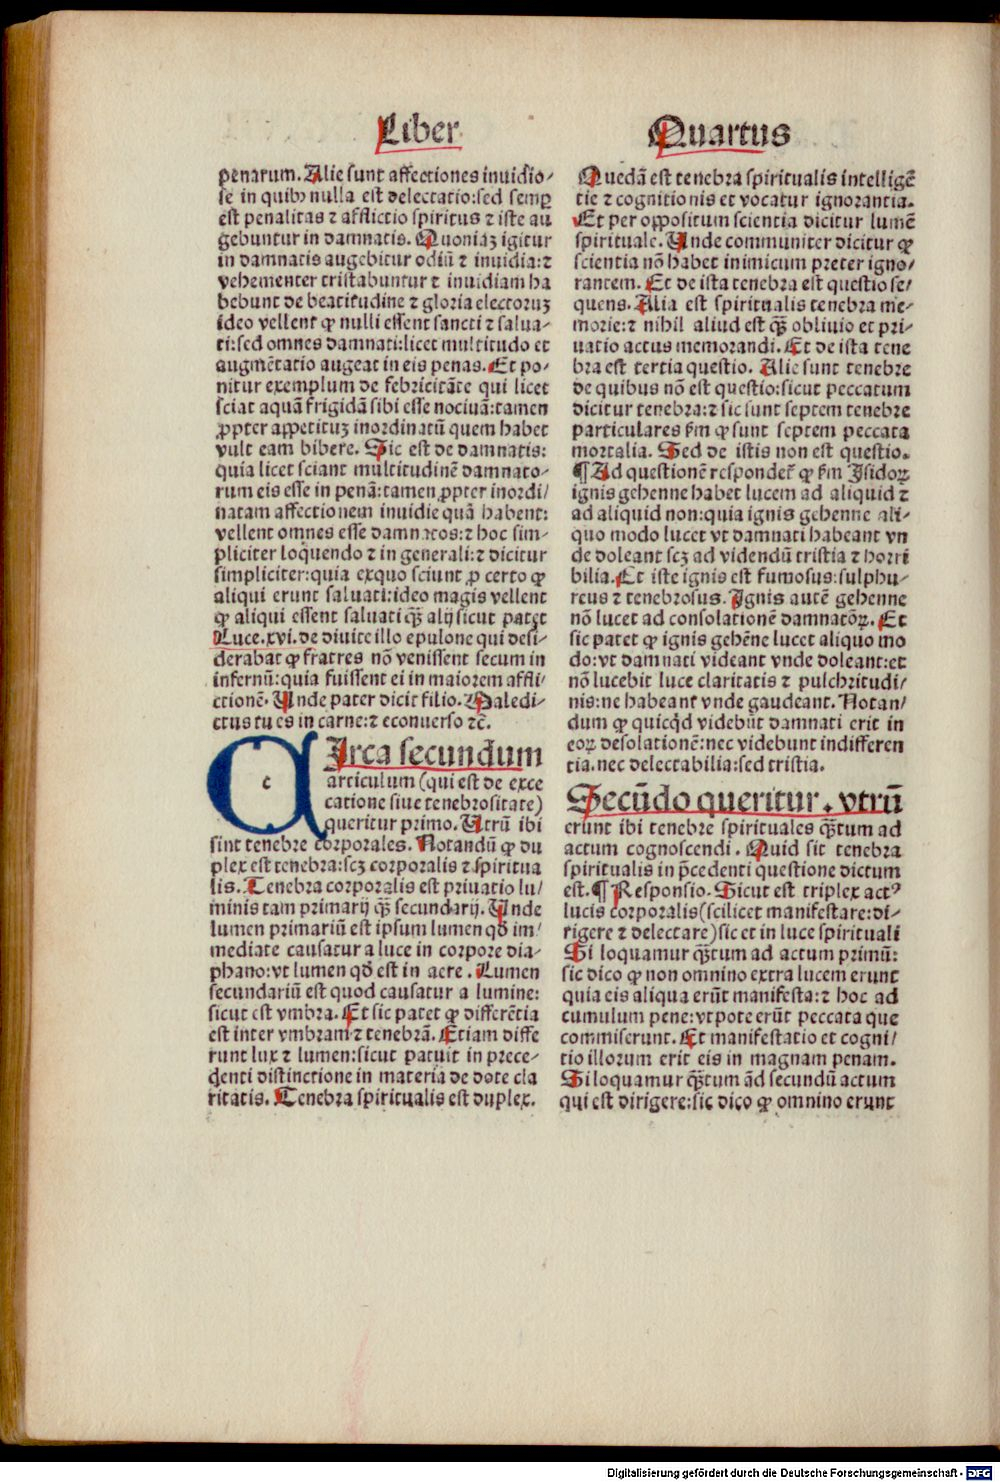 Liber
Quartus
penarum. Alie sunt affectiones inuidio⸗
se in quibꝰ nulla est delectatio:sed semꝑ
est penalitas ⁊ afflictio spiritus ⁊ iste au
gebuntur in damnatis. Quoniaꝫ igitur
in damnatis augebitur odiū ⁊ inuidia:⁊
vehementer tristabuntur ⁊ inuidiam ha
bebunt de beatitudine ⁊ gloria electoruꝫ
ideo vellent ꝙ nulli essent sancti ⁊ salua⸗
ti:sed omnes damnati:licet multitudo et
augmētatio augeat in eis penas. Et po⸗
nitur exemplum de febricitāte qui licet
sciat aquā frigidā sibi esse nociuā:tamen
ꝓpter appetituꝫ inordinatū quem habet
vult eam bibere. Sic est de damnatis:
quia licet sciant multitudinē damnato⸗
rum eis esse in penā:tamen ꝓpter inordi⸗
natam affectionem inuidie quā habent:
vellent omnes esse damnatos:⁊ hoc sim⸗
pliciter loquendo ⁊ in generali:⁊ dicitur
simpliciter:quia exquo sciunt ꝓ certo ꝙ
aliqui erunt saluati:ideo magis vellent
ꝙ aliqui essent saluati ꝗ̃ȝ alij sicut patet
Luce.xvi.de diuite illo epulone qui desi⸗
derabat ꝙ fratres nō venissent secum in
infernū:quia fuissent ei in maiorem affli⸗
ctionē. Unde pater dicit filio. Maledi⸗
ctus tu es in carne:⁊ econuerso ⁊c̄.
c Irca secundum
articulum (qui est de exce
catione siue tenebrositate)
queritur primo. Utrū ibi
sint tenebre corporales. Notandū ꝙ du
plex est tenebra:scꝫ corporalis ⁊ spiritua
lis. Tenebra corporalis est priuatio lu⸗
minis tam primarij ꝗ̃ȝ secundarij. Unde
lumen primariū est ipsum lumen qđ im⸗
mediate causatur a luce in corpore dia⸗
phano:vt lumen qđ est in aere. Lumen
secundariū est quod causatur a lumine:
sicut est vmbra. Et sic patet ꝙ differētia
est inter vmbram ⁊ tenebrā. Etiam diffe
runt lux ⁊ lumen:sicut patuit in prece⸗
denti distinctione in materia de dote cla
ritatis. Tenebra spiritualis est duplex.
Quedā est tenebra spiritualis intelligē
tie ⁊ cognitionis et vocatur ignorantia.
Et per oppositum scientia dicitur lumē
spirituale. Unde communiter dicitur ꝙ
scientia nō habet inimicum preter igno⸗
rantem. Et de ista tenebra est questio se⸗
quens. Alia est spiritualis tenebra me⸗
morie:⁊ nihil aliud est ꝗ̃ȝ obliuio et pri⸗
uatio actus memorandi. Et de ista tene
bra est tertia questio. Alie sunt tenebre
de quibus nō est questio:sicut peccatum
dicitur tenebra:⁊ sic sunt septem tenebre
particulares ẜm ꝙ sunt septem peccata
mortalia. Sed de istis non est questio.
¶ Ad questionē respondet̄ ꝙ ẜm Isidoꝝ
ignis gehenne habet lucem ad aliquid ⁊
ad aliquid non:quia ignis gehenne ali⸗
quo modo lucet vt damnati habeant vn
de doleant scꝫ ad videndū tristia ⁊ horri
bilia. Et iste ignis est fumosus:sulphu⸗
reus ⁊ tenebrosus. Ignis autē gehenne
nō lucet ad consolationē damnatōꝝ. Et
sic patet ꝙ ignis gehēne lucet aliquo mo
do:vt damnati videant vnde doleant:et
nō lucebit luce claritatis ⁊ pulchritudi⸗
nis:ne habeant vnde gaudeant. Notan⸗
dum ꝙ quicqd videbūt damnati erit in
eoꝝ desolationē:nec videbunt indifferen
tia.nec delectabilia:sed tristia.
Secūdo queritur. vtrū
erunt ibi tenebre spirituales ꝗ̃ȝtum ad
actum cognoscendi. Quid sit tenebra
spiritualis in p̄cedenti questione dictum
est. ¶ Responsio. Sicut est triplex actꝰ
lucis corporalis (scilicet manifestare:di⸗
rigere ⁊ delectare) sic et in luce spirituali
Si loquamur ꝗ̃ȝtum ad actum primū:
sic dico ꝙ non omnino extra lucem erunt
quia eis aliqua erūt manifesta:⁊ hoc ad
cumulum pene:vtpote erūt peccata que
commiserunt. Et manifestatio et cogni⸗
tio illorum erit eis in magnam penam.
Si loquamur ꝗ̃ȝtum ad secundū actum
qui est dirigere:sic dico ꝙ omnino erunt
Digitalisierung gefördert durch die Deutsche Forschungsgemeinschaft - DFG